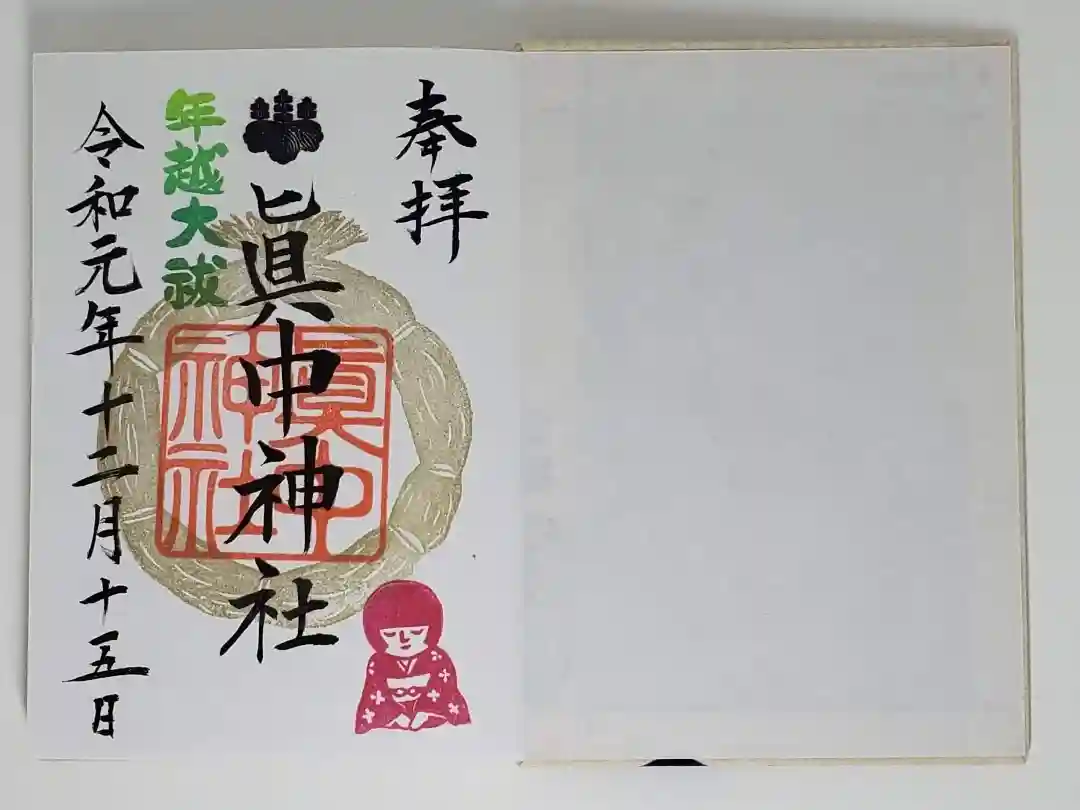 奉拝
眞中神社
眞中
神社
年越大祓
令和元年十二月十五日